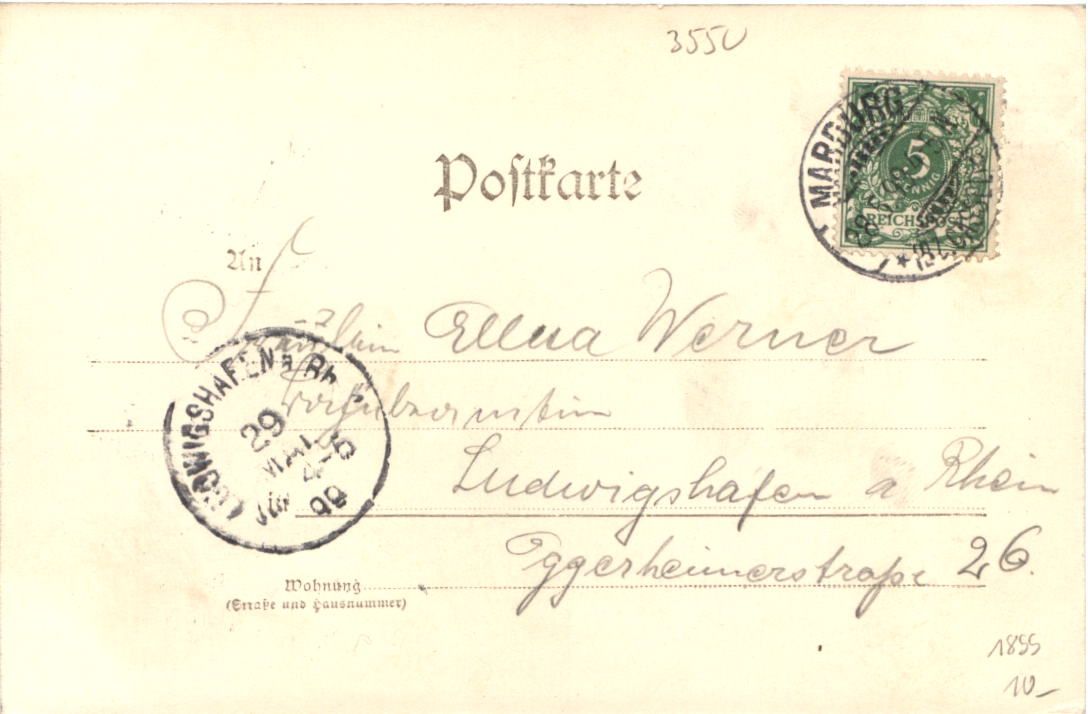 3550
Postkarte
5
PFENNIG
REICHSPOST
MARBURG
An
Fräulein Ellua Werner
Ludwigshafen a Rhein
Oggersheimerstraße 26.
LUDWIGSHAFEN a. Rh.
29
MAI
99
Wohnung
(Straße und Hausnummer)
1899
10-